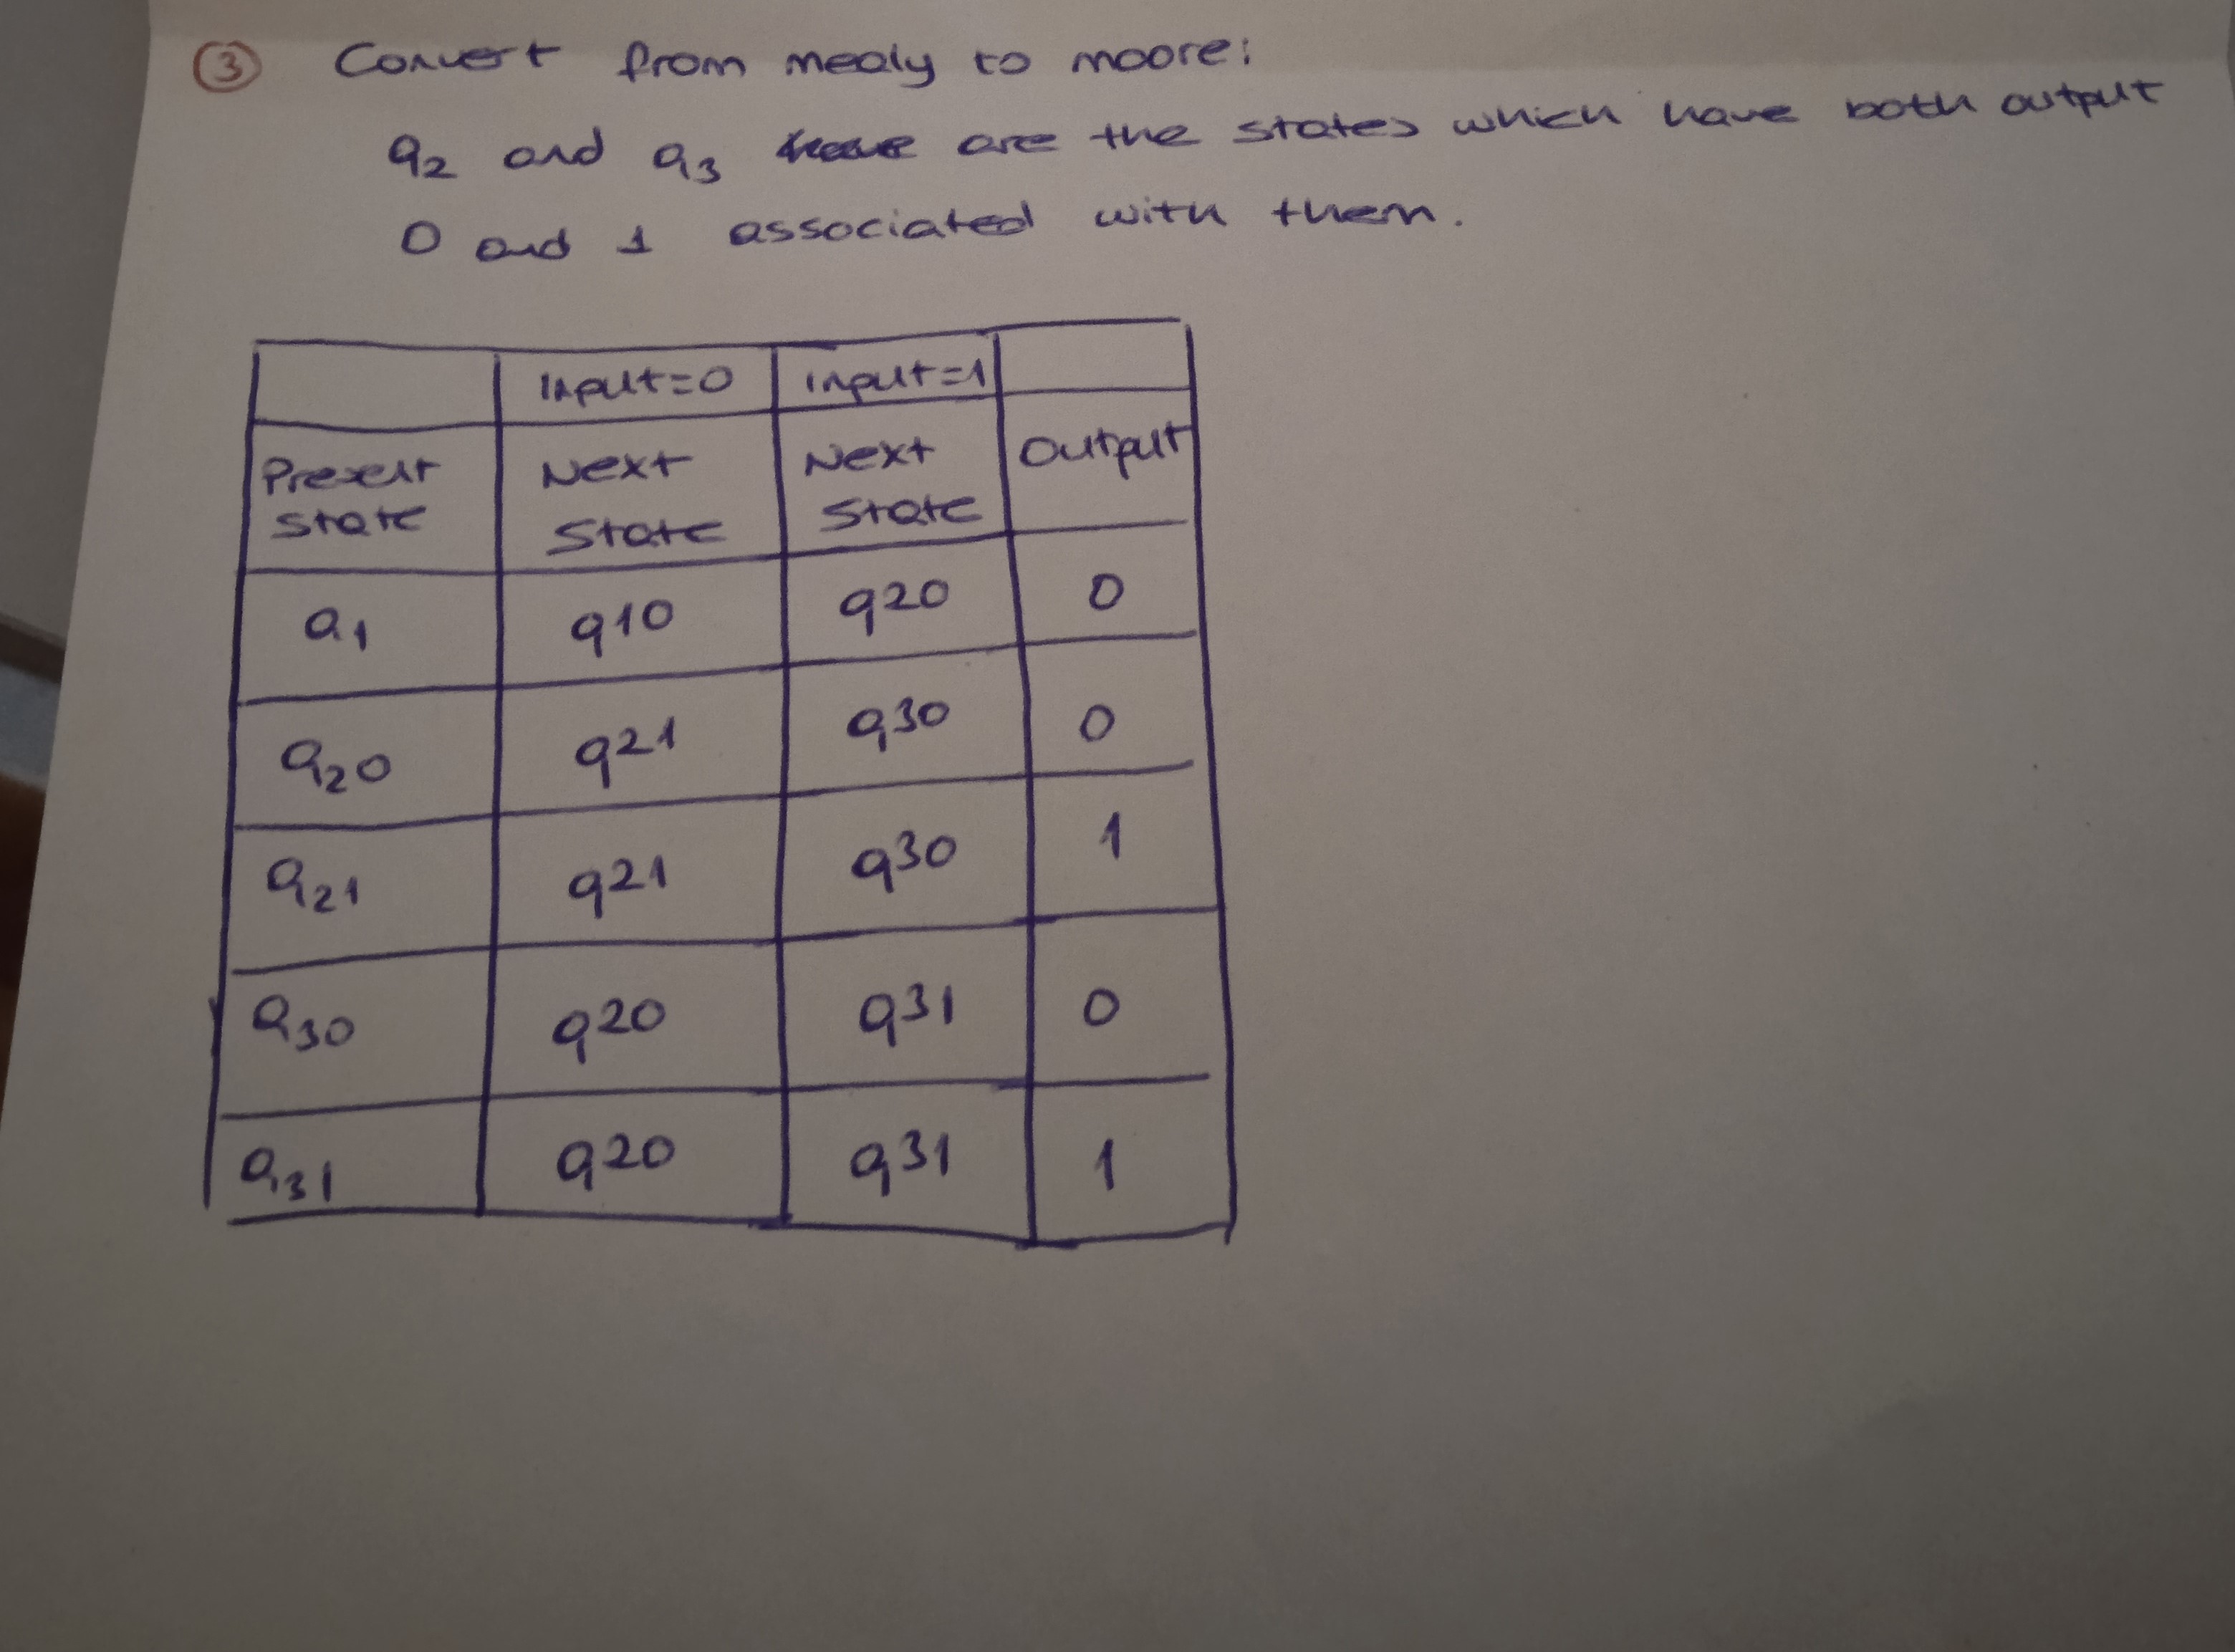 3 Convert from mealy to moore:
q2 and q3 are the states which have both output
0 and 1 associated with them.
Input=0 input=1
Present state Next State Next State Output
q1 q10 q20 0
q20 q21 q30 0
q21 q21 q30 1
q30 q20 q31 0
q31 q20 q31 1